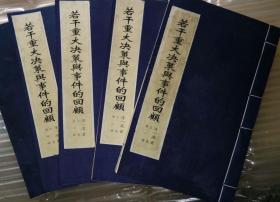 若干重大决策與事件的回顧
若干重大决策與事件的回顧
若干重大决策與事件的回顧
若干重大决策與事件的回顧